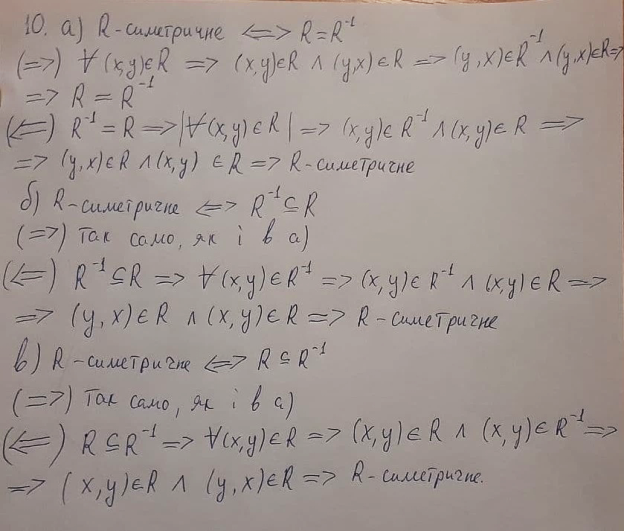 10. а) R-симетричне <=> R=R⁻¹
(=>) ∀(x,y)∈R => (x,y)∈R ∧ (y,x)∈R => (y,x)∈R⁻¹ ∧ (y,x)∈R =>
=> R = R⁻¹
(<=) R⁻¹=R => |∀(x,y)∈R| => (x,y)∈R⁻¹ ∧ (x,y)∈R =>
=> (y,x)∈R ∧ (x,y)∈R => R-симетричне
б) R-симетричне <=> R⁻¹⊆R
(=>) Так само, як і в а)
(<=) R⁻¹⊆R => ∀(x,y)∈R⁻¹ => (x,y)∈R⁻¹ ∧ (x,y)∈R =>
=> (y,x)∈R ∧ (x,y)∈R => R-симетричне
в) R-симетричне <=> R⊆R⁻¹
(=>) Так само, як і в а)
(<=) R⊆R⁻¹ => ∀(x,y)∈R => (x,y)∈R ∧ (x,y)∈R⁻¹ =>
=> (x,y)∈R ∧ (y,x)∈R => R-симетричне.